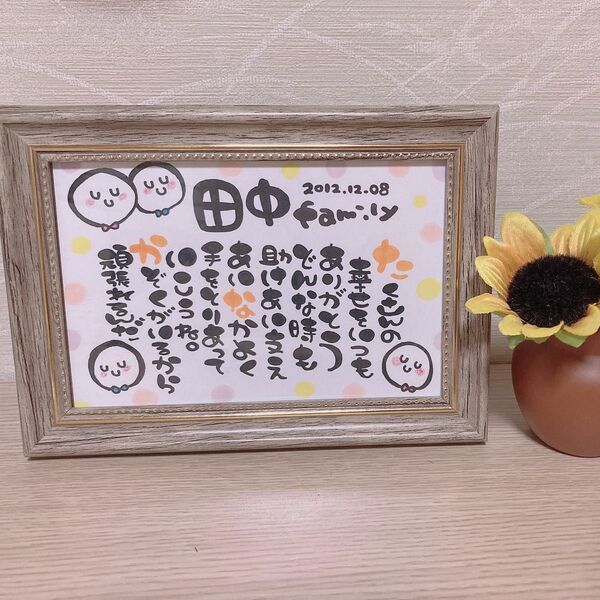 田中 family
2012.12.08
たくさんの
幸せをいつも
ありがとう
どんな時も
助けあい支え
あいなかよく
手をとりあって
いこうね。
かぞくがいるから
頑張れるんだ